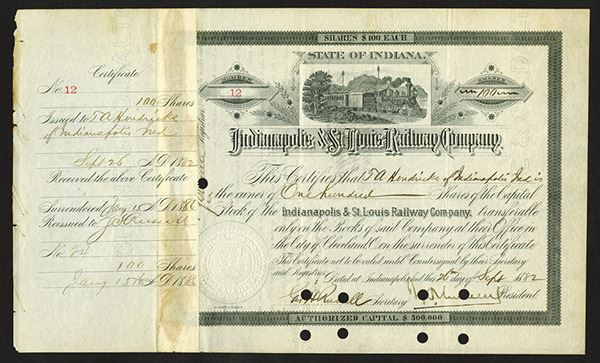 Certificate
No. 12
100 Shares
Issued to T A Hendricks
of Indianapolis Ind
Sept 26 A.D. 1882
Received the above Certificate
Surrendered Jany 15 A.D. 1886
Reissued to
No. 24
100 Shares
Jany 15th A.D. 188
SHARES $100 EACH
STATE OF INDIANA.
NUMBER
12
SHARES
100
Indianapolis & St. Louis Railway Company.
This Certifies that T A Hendricks of Indianapolis Ind is
the owner of One hundred Shares of the Capital
Stock of the Indianapolis & St. Louis Railway Company, transferable
only on the Books of said Company at their Office in
the City of Cleveland O. on the surrender of this Certificate
This Certificate not to be valid until Countersigned by their Secretary
and Registrar.
Dated at Indianapolis Ind this 26th day of Sept 1882
Geo. H. Russell Secretary
President
AUTHORIZED CAPITAL $500,000